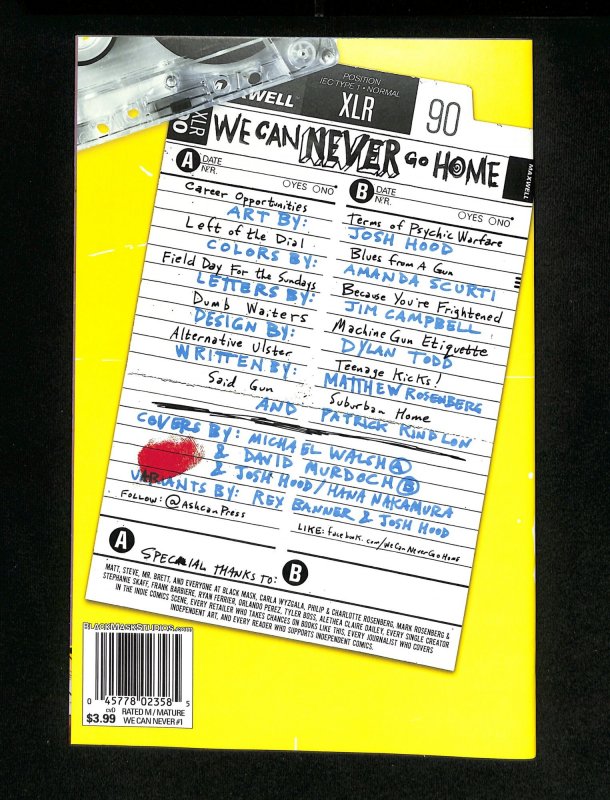 POSITION
IEC TYPE 1 • NORMAL
XWELL XLR 90
XLR
MAXWELL
WE CAN NEVER GO HOME
A DATE
NR. OYES ONO
B DATE
NR. OYES ONO
Career Opportunities
Terms of Psychic Warfare
ART BY: JOSH HOOD
Left of the Dial
Blues from A Gun
COLORS BY: AMANDA SCURTI
Field Day For the Sundays
Because You're Frightened
LETTERS BY: JIM CAMPBELL
Dumb Waiters
Machine Gun Etiquette
DESIGN BY: DYLAN TODD
Alternative Ulster
Teenage Kicks!
WRITTEN BY: MATTHEW ROSENBERG
Said Gun
Suburban Home
AND PATRICK KINDLON
COVERS BY: MICHAEL WALSH A
& DAVID MURDOCH B
& JOSH HOOD/HANA NAKAMURA
VARIANTS BY: REX BANNER & JOSH HOOD
FOLLOW: @AshcanPress
LIKE: facebook.com/WeCanNeverGoHome
A
B
SPECIAL THANKS TO:
MATT, STEVE, MR. BRETT, AND EVERYONE AT BLACK MASK, CARLA WYZGALA, PHILIP & CHARLOTTE ROSENBERG, MARK ROSENBERG &
STEPHANIE SKAFF, FRANK BARBIERE, RYAN FERRIER, ORLANDO PEREZ, TYLER BOSS, ALETHEA CLAIRE DAILEY, EVERY SINGLE CREATOR
IN THE INDIE COMICS SCENE, EVERY RETAILER WHO TAKES CHANCES ON BOOKS LIKE THIS, EVERY JOURNALIST WHO COVERS
INDEPENDENT ART, AND EVERY READER WHO SUPPORTS INDEPENDENT COMICS.
BLACKMASKSTUDIOS.com
0 45778 02358 5
cvD RATED M / MATURE
$3.99 WE CAN NEVER #1